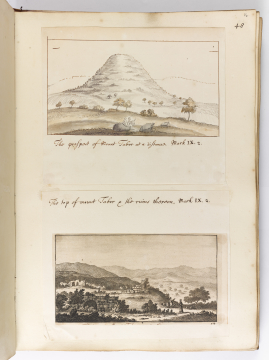 48
The prospect of Mount Tabor at a distance. Mark IX. 2.
The top of mount Tabor & the ruins thereon. Mark IX. 2.